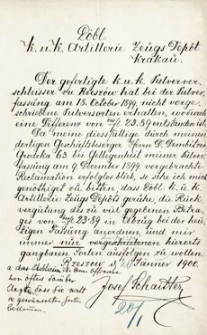 Löbl.
k. u. k. Artillerie Zeugs Depôt
Krakau.
Der gefertigte k. u. k. Pulverver-
schleisser in Rzeszów hat bei der Pulver-
fassung am 18. October 1899, nicht vorge-
schriebene Pulversorten erhalten, wodurch
eine Differenz von 23.89 entstanden ist.
Da meine diessfällige durch meinen
dortigen Geschäftsträger Herrn D.
Grodzka 63 bei Gelegenheit meiner Pulver-
fassung am 9. December 1899 vorgebrachte
Reclamation erfolglos blieb, so sehe ich mich
genöthiget zu bitten, das Löbl. k. u. k.
Artillerie Zeugs Depôt geruhe, die Rück-
vergütung des zu viel gezahlten Betra-
ges von 23.89 in Abzug bei der heu-
tigen Fassung anordnen, und mir
immer nur vorgeschriebene hierorts
gangbaren Sorten ausfolgen zu wollen.
Rzeszów Jänner 1900.
Josef Schaitter
20/1